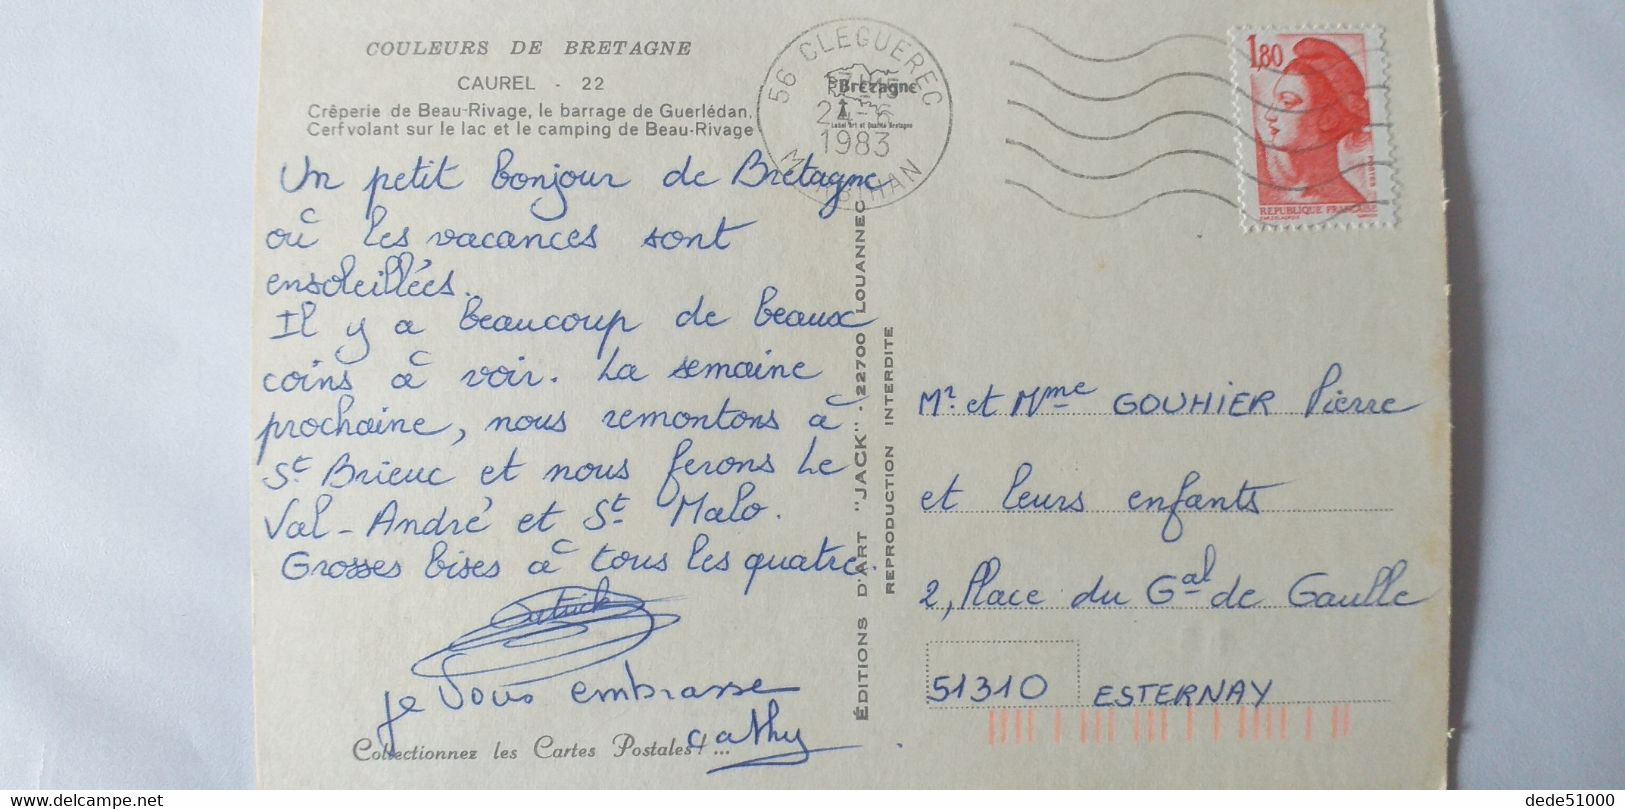 COULEURS DE BRETAGNE
CAUREL - 22
Crêperie de Beau-Rivage, le barrage de Guerlédan,
Cerf volant sur le lac et le camping de Beau-Rivage
Un petit bonjour de Bretagne
où les vacances sont
ensoleillées.
Il y a beaucoup de beaux
coins à voir. La semaine
prochaine, nous remontons à
St Brieuc et nous ferons Le
Val-André et St Malo.
Grosses bises à tous les quatre.
Patrick
Je vous embrasse
Cathy
Collectionnez les Cartes Postales ! ...
56 CLEGUEREC
Bretagne
1983
MORBIHAN
ÉDITIONS D'ART "JACK" - 22700 LOUANNEC
REPRODUCTION INTERDITE
1,80
POSTES
REPUBLIQUE FRANÇAISE
Mr. et Mme GOUHIER Pierre
et leurs enfants
2, Place du Gal de Gaulle
51310 ESTERNAY
www.delcampe.net
dede51000